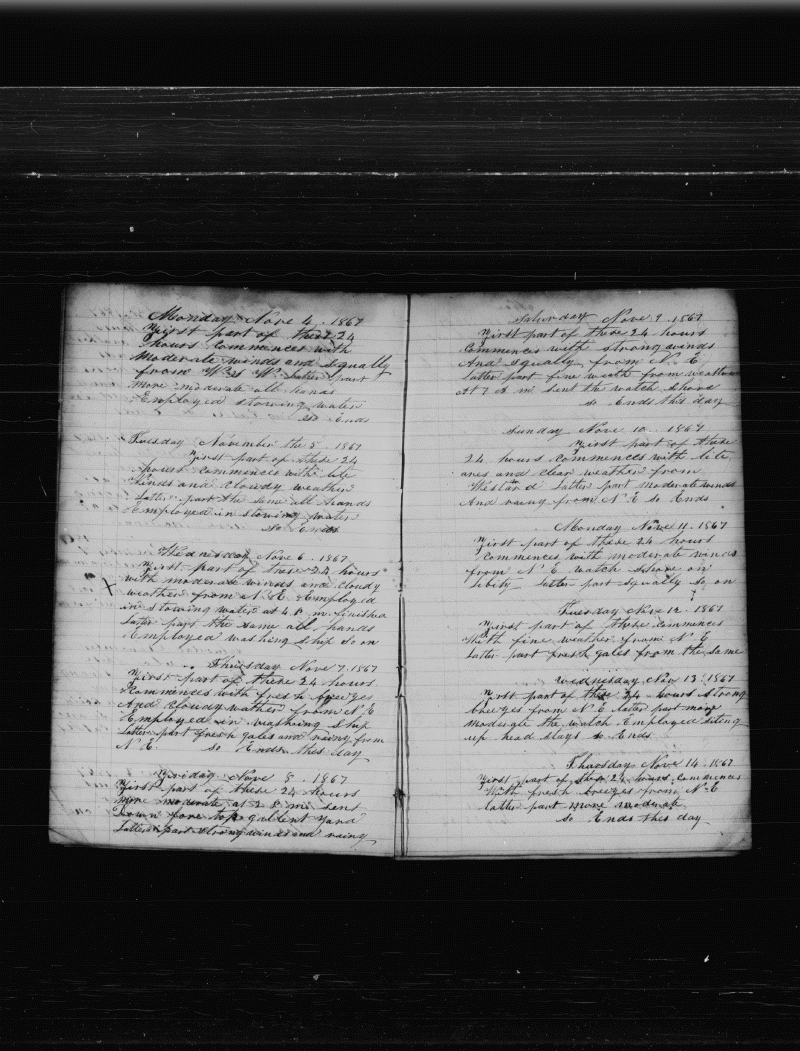 Monday Nove 4 . 1867
First part of these 24
hours commences with
Moderate winds and squally
from W.S.W. latter part
more moderate all hands
Employed stowing water
so Ends
Tuesday November the 5 . 1867
First part of these 24
hours commences with lite
winds and cloudy weather
latter part the same all hands
Employed in stowing water
So Ends
Wednisday Nove 6 . 1867
First part of these 24 hours
with moderate winds and cloudy
weather from N.E. Employed
in stowing water at 4 P. m. finished
latter part the same all hands
Employed washing ship So on
Thursday Nove 7. 1867
First part of these 24 hours
Commences with fresh breezes
And Cloudy wather from N E
Employed in washing ship
latter part fresh gales and rainy from
N E. so Ends this day
Friday Nove 8 . 1867
First part of these 24 hours
more moderate at 2 P. m. sent
Down fore top gallent yard
latter part strong winds and rainy
Saturday Nove 9 . 1867
First part of these 24 hours
Commences with strong winds
And squally from N. E
latter part fine weath from weather
at 7 A m. sent the watch shore
so Ends this day
Sunday Nove 10 . 1867
First part of these
24 hours commences with lite
ares and clear weather from
Westard latter part moderate winds
And rainy from N E so Ends
Monday Nove 11 . 1867
First part of these 24 hours
Commences with moderate winds
from N E watch shore on
libity latter part squally so on
Tuesday Nove 12 . 1867
First part of these commences
With fine weather from N. E
latter part fresh gales from the same
Wednesday Nov 13 . 1867
First part of these 24 hours strong
breezes from N. E. latter part more
moderate the watch Employed siting
up head stays so Ends
Thursday Nove 14 . 1867
First part of these 24 hours commences
With fresh breezes from N. E
latter part more moderate
so Ends this day